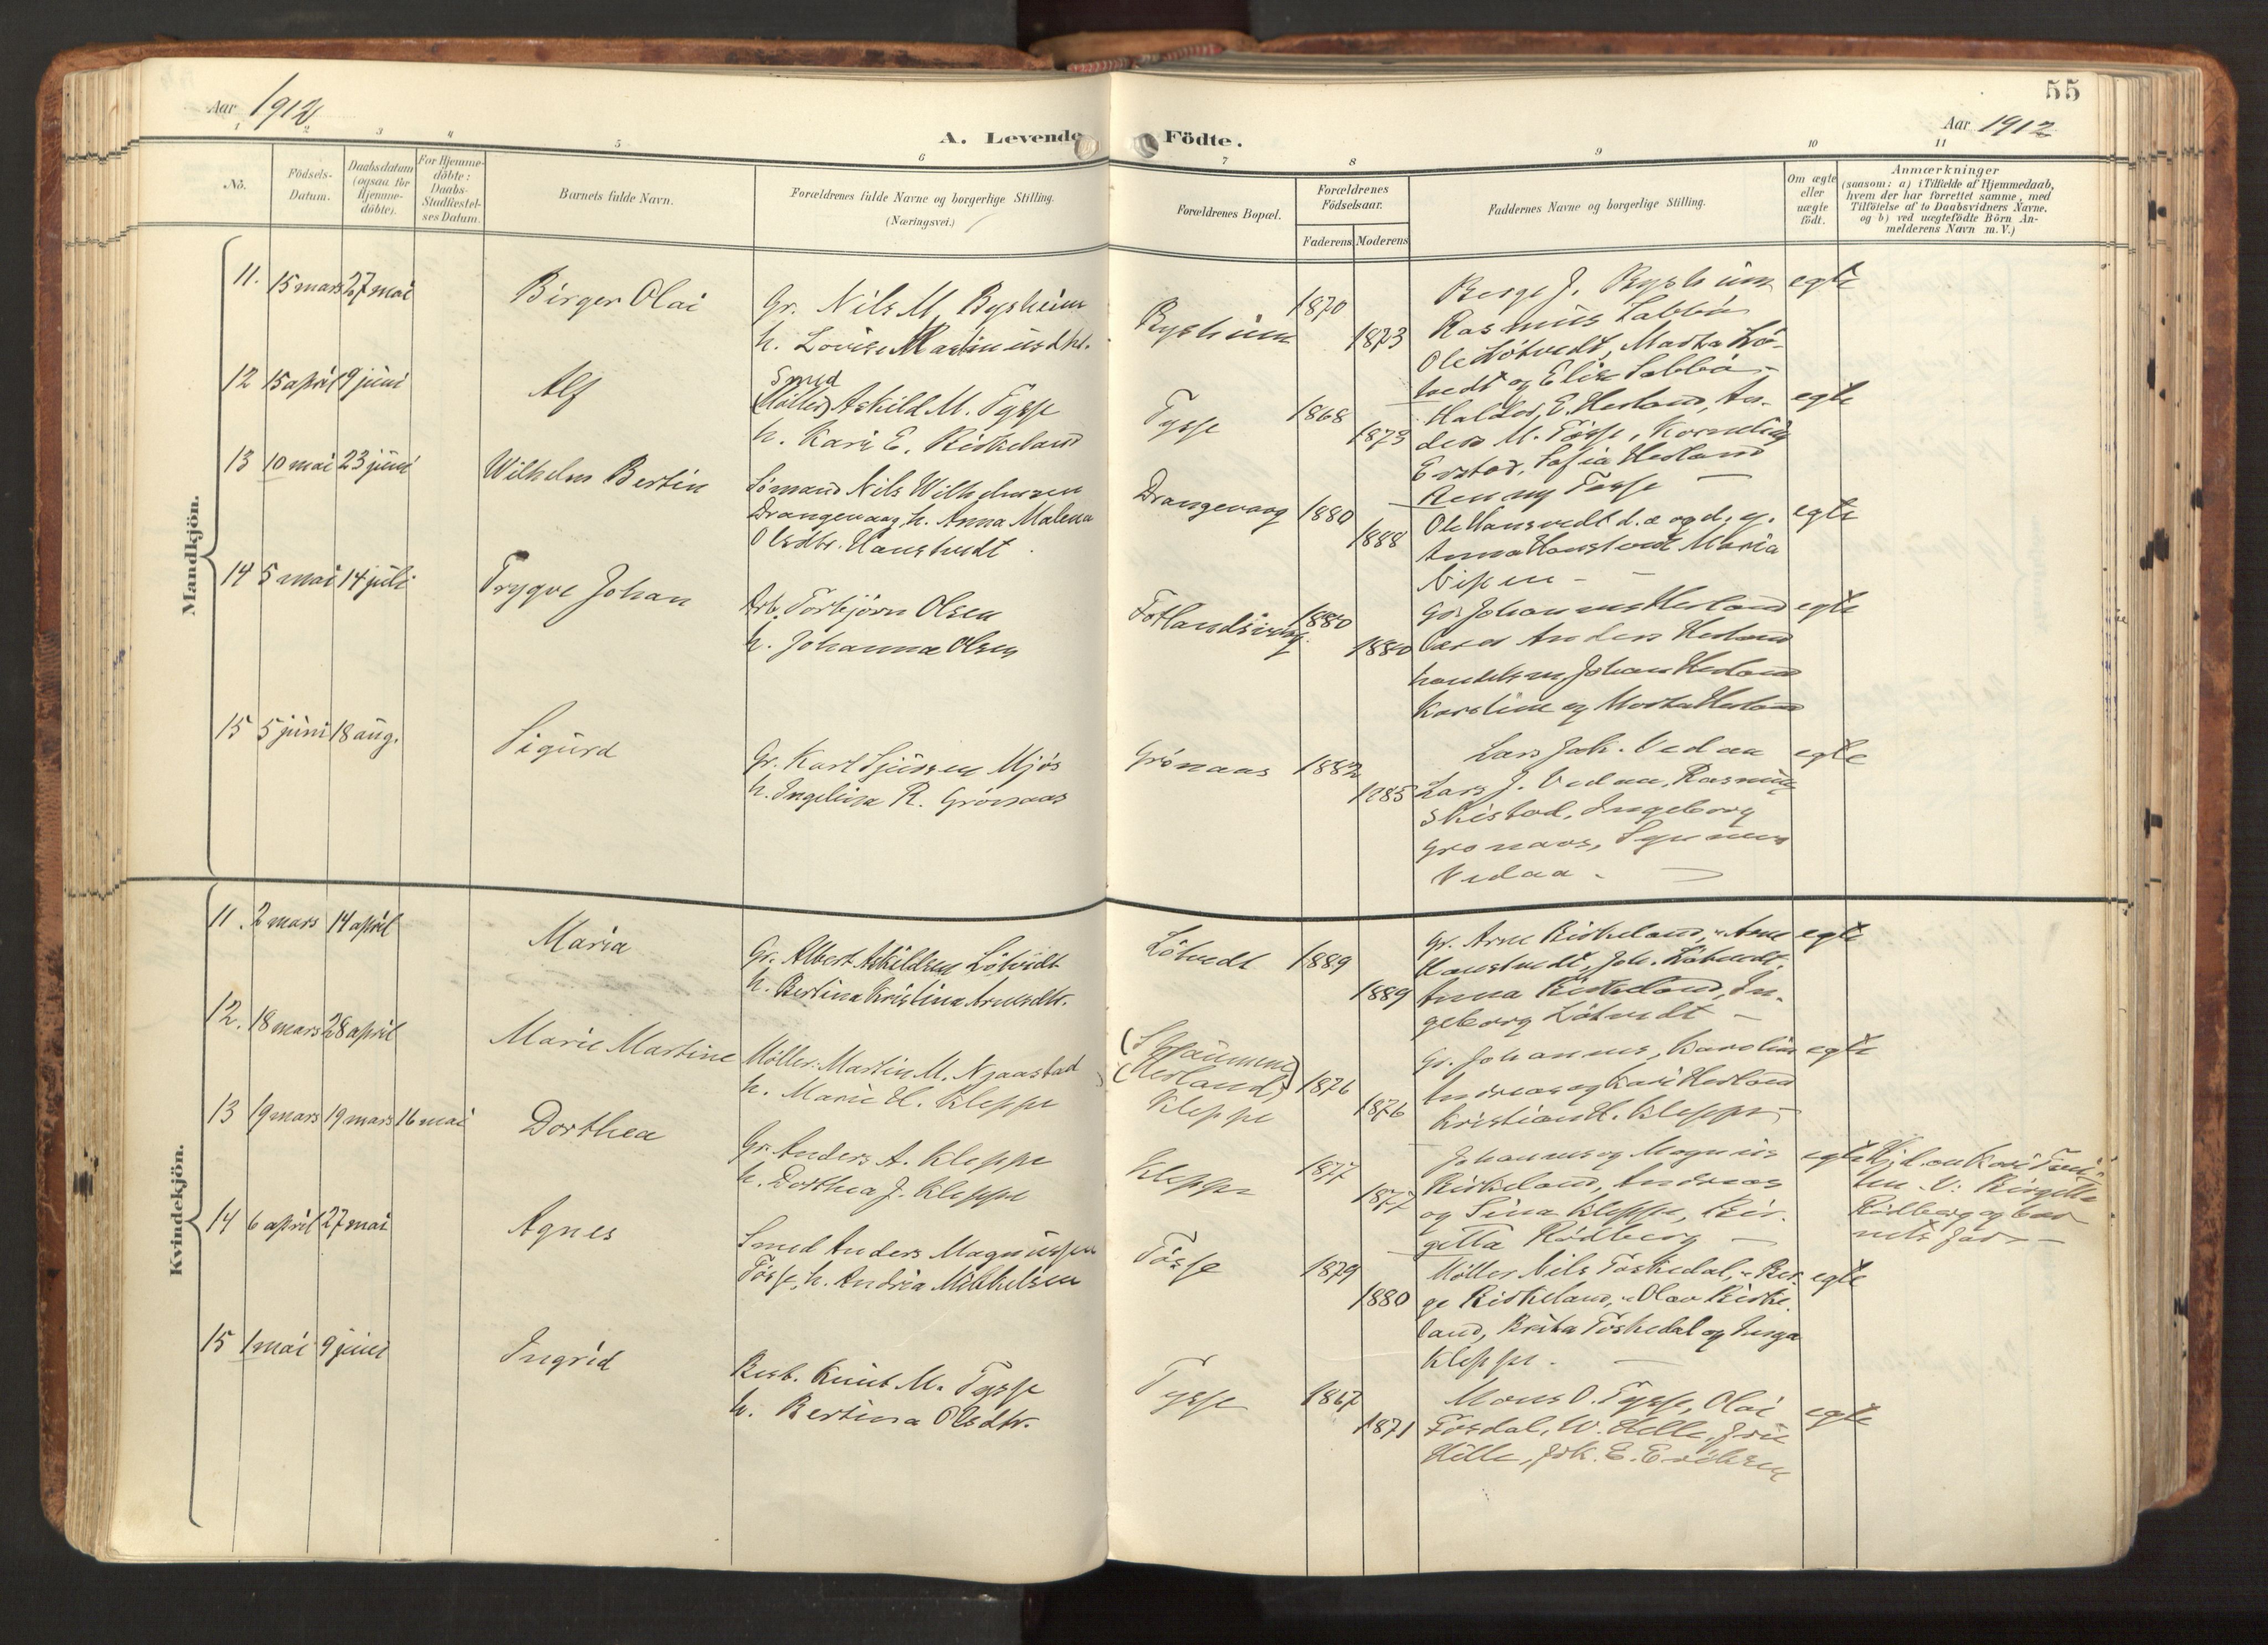 Aar 1912
A. Levende Födte.
55
Aar 1912
1 2 3 4 5 6 7 8 9 10 11
No.
Födsels-
Datum.
Daabsdatum
(ogsaa for
Hjemme-
döbte).
For Hjemme-
döbte:
Daabs-
Stadfæstel-
ses Datum.
Barnets fulde Navn.
Forældrenes fulde Navne og borgerlige Stilling.
(Næringsvei.)
Forældrenes Bopæl.
Forældrenes
Födselsaar.
Faderens Moderens
Faddernes Navne og borgerlige Stilling.
Om ægte
eller
uægte
födt.
Anmærkninger
(saasom: a) i Tilfælde af Hjemmedaab,
hvem der har forrettet samme, med
Tilföielse af to Daabsvidners Navne,
og b) ved uægtefödte Börn An-
melderens Navn m. V.)
Mandkjön.
11. 15 mars 27 mai
Birger Olai
Gr. Nils M. Bysheim
h. Lovise Martinusdtr.
Bysheim
1870
1873
Berge J. Bysheim
Rasmus Sabbø
Ole Løtvedt, Marta Lø-
tvedt og Elise Sabbø -
egte
12 15 april 9 juni
Alf
Smed
(Møller) Askild M. Tysse
h. Kari E. Birkeland
Tysse
1868
1873
Haldor E. Herland, An-
ders M. Tøsse, Kornelia
Erstad, Sofia Herland
Tøsse -
egte
13 10 mai 23 juni
Wilhelm Bertin
Sømand Nils Wilhelmsen
Drangevaag h. Anna Malena
Olsdtr. Haustvedt
Drangevaag
1880
1888
Ole Hausvedt d. æ og d. y.
Anna Haustvedt Maria
egte
14 5 mai 14 juli
Trygve Johan
Arb. Torbjørn Olsen
h. Johanna Olsen
Fotlandsvaag.
1880
1880
Gr. Johannes Herland
Anders Herland
handelsm. Johan Herland
Karoline og Marta Herland
egte
15 5 juni 18 aug.
Sigurd
Gr. Karl Sjursen Mjøs
h. Ingelina R. Grønaas
Grønaas
1882
1885
Lars Joh. Vedaa
Lars J. Vedaa, Rasmus
Skistad, Ingeborg
Grønaas, Synneva
Vedaa -
egte
Kvindekjön.
11. 2 mars 14 april
Maria
Gr. Albert Askildsen Løtvedt
h. Bertina Kristina Arnesdtr.
Løtvedt
1889
1889
Gr. Arne Birkeland, " Arne
Haustvedt, Joh. Løtvedt,
Anna Birkeland, In-
geborg Løtvedt -
egte
12. 18 mars 28 april
Marie Martine
Møller: Martin M. Njaastad
h. Marie H. Kleppe
(Herland)
Kleppe
1876
1876
Gr. Johannes, Karoline
Andreas og Kari Herland
Kristian H. Kleppe -
egte
13 19 mars 19 mars 16 mai
Dorthea
Gr. Anders A. Kleppe
h. Dorthea J. Kleppe
Kleppe
1877
1877
Johannes og Magnus
Birkeland, Andreas
og Sina Kleppe, Bir-
gitta Rødberg -
egte
Hj.d. av Kari
V: Birgitta
Rødberg og bar-
nets far -
14 6 april 27 mai
Agnes
Smed Anders Magnussen
Tøsse, h. Andrea Mikkelsen
Tøsse
1879
1880
Møller Nils Toskedal, " Ber-
ge Birkeland, " Olav Birke-
land, Brita Toskedal og Inga
Kleppe. -
egte
15 1 mai 9 juni
Ingrid
Knut M. Tysse
h. Bertina Olsdtr.
Tysse
1867
1871
Mons O. Tysse, Olai
Fosdal, W. Helle,
Helle, E. Eriksen
egte